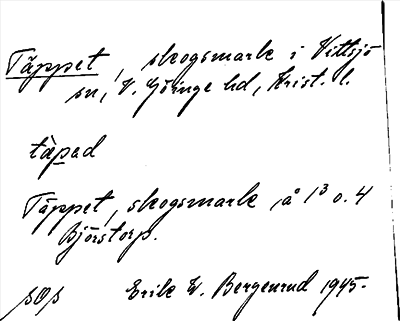 Täppet, skogsmark i Vittsjö
sn, V. Göinge hd, Krist. l.
täpad
Täppet, skogsmark, å 1³ o. 4
Björstorp.
Erik W. Bergenrud 1945.